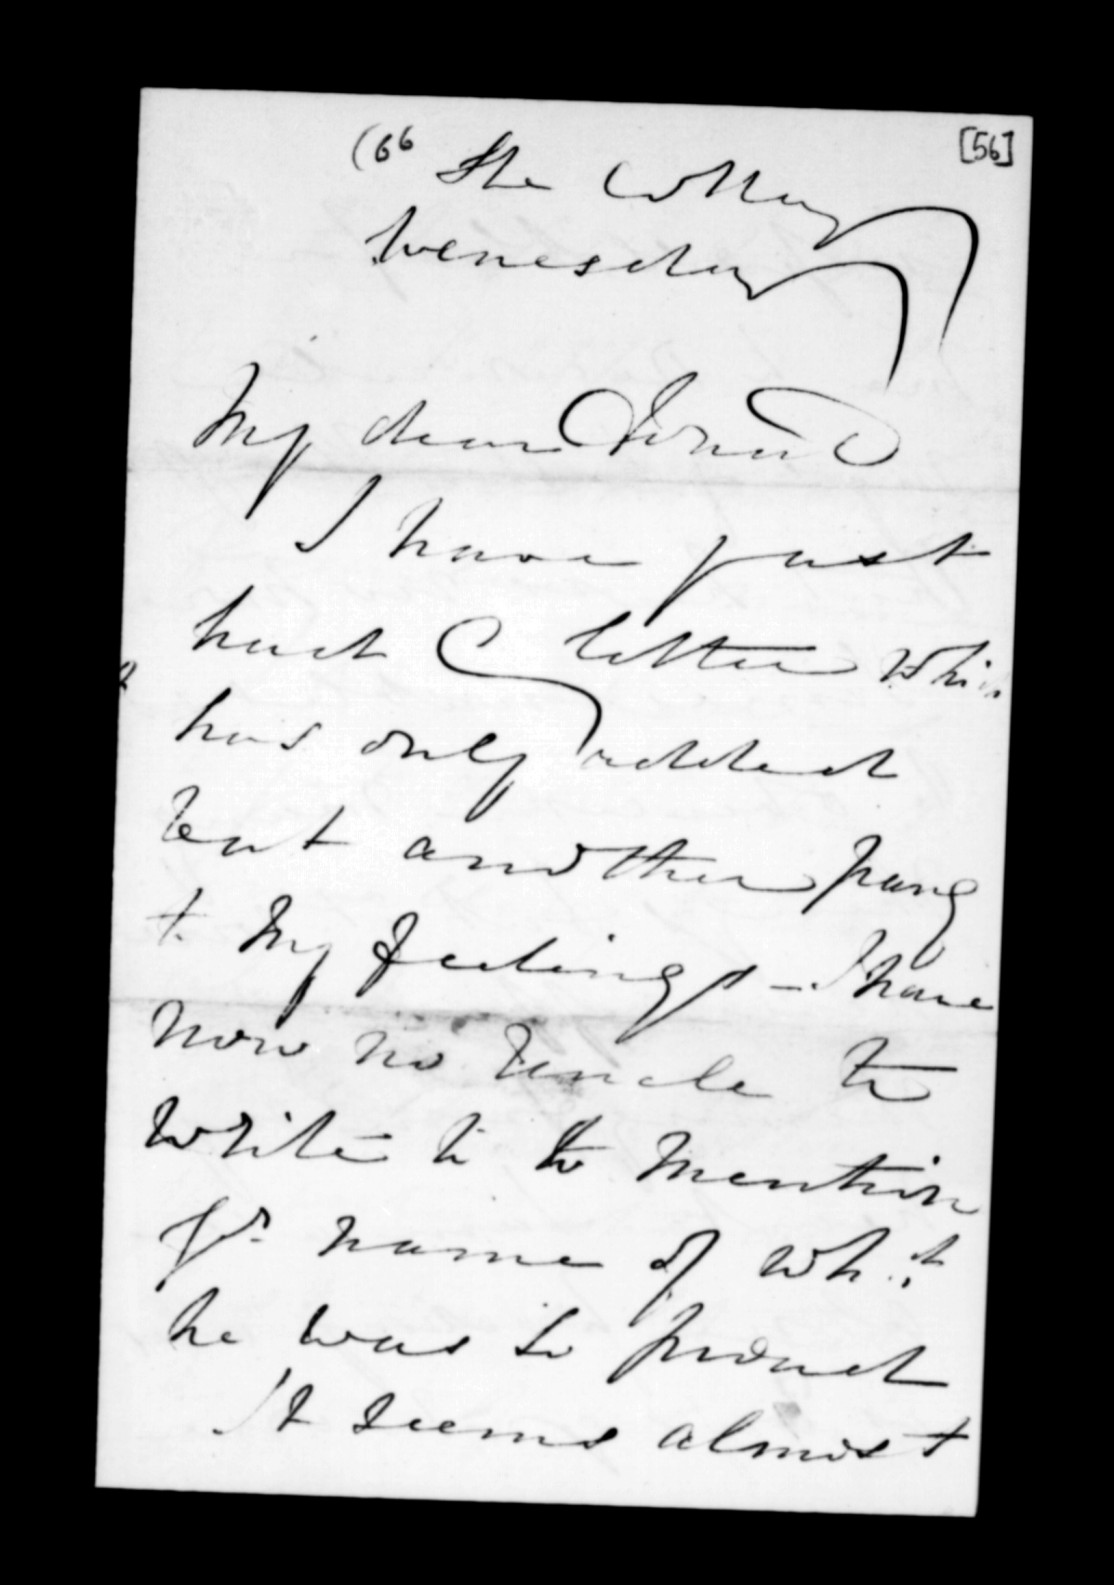 (66 The Cottage [56]
Wenesday
My dear Donald
I have just
had a letter which
has only added
but another pang
to my feelings - I have
now no Uncle to
write to to mention
yr name of wh.
he was so proud
It seems almost